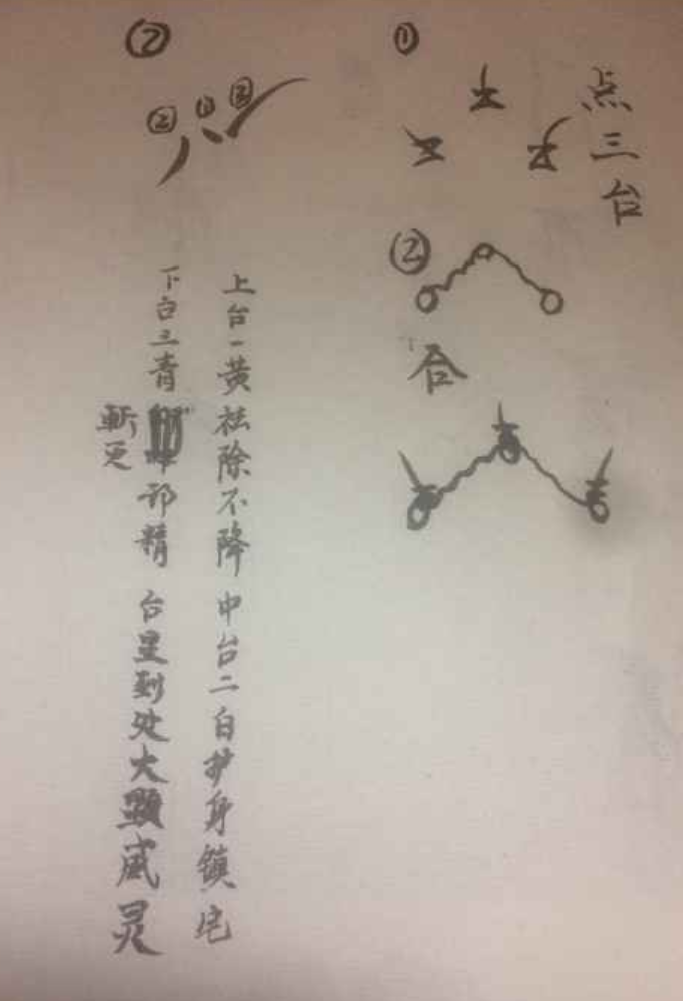 ①
点三台
②
合
②
② ① ③
上台一黄祛除不降 中台二白护身镇宅
下台三青 邪精 台星到处大顯威灵
斬